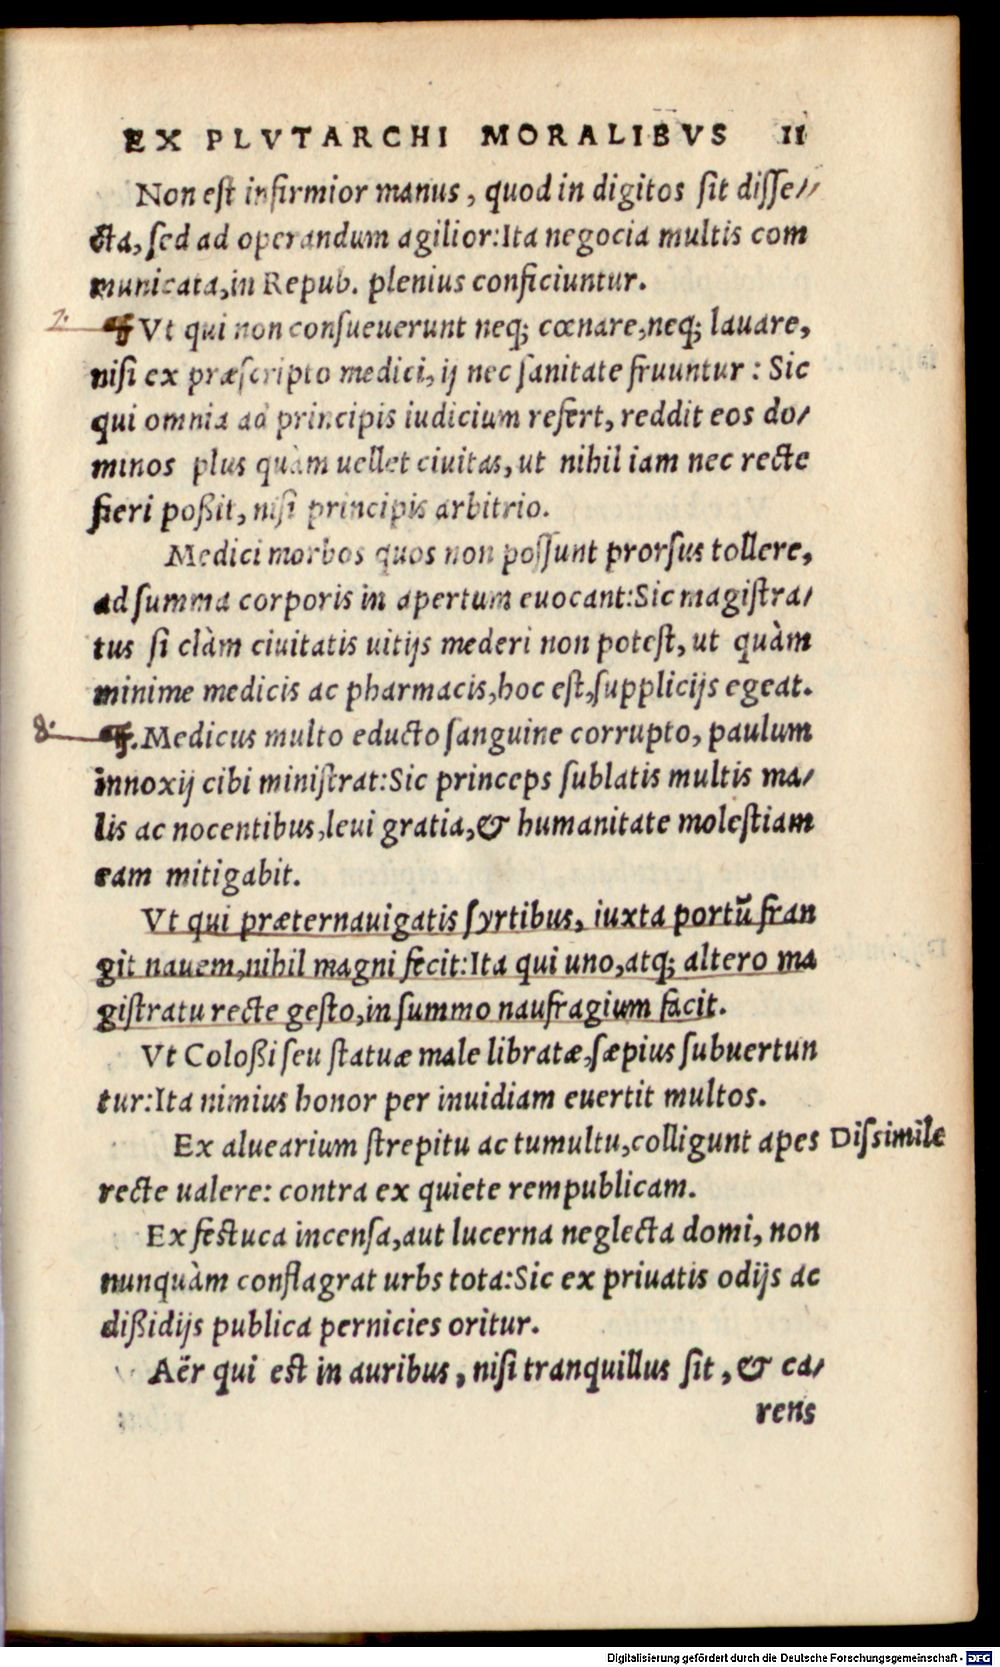 EX PLVTARCHI MORALIBVS 11
Non est infirmior manus, quod in digitos sit disse⸗
cta, sed ad operandum agilior:Ita negocia multis com
municata, in Repub. plenius conficiuntur.
7. ¶ Vt qui non consueuerunt neq; cœnare, neq; lauare,
nisi ex præscripto medici, ij nec sanitate fruuntur : Sic
qui omnia ad principis iudicium refert, reddit eos do⸗
minos plus quàm uellet ciuitas, ut nihil iam nec recte
fieri poßit, nisi principis arbitrio.
Medici morbos quos non possunt prorsus tollere,
ad summa corporis in apertum euocant:Sic magistra⸗
tus si clàm ciuitatis uitijs mederi non potest, ut quàm
minime medicis ac pharmacis, hoc est, supplicijs egeat.
8. ¶. Medicus multo educto sanguine corrupto, paulum
innoxij cibi ministrat:Sic princeps sublatis multis ma⸗
lis ac nocentibus, leui gratia, & humanitate molestiam
eam mitigabit.
Vt qui præternauigatis syrtibus, iuxta portũ fran
git nauem, nihil magni fecit:Ita qui uno, atq; altero ma
gistratu recte gesto, in summo naufragium facit.
Vt Coloßi seu statuæ male libratæ, sæpius subuertun
tur:Ita nimius honor per inuidiam euertit multos.
Ex aluearium strepitu ac tumultu, colligunt apes Dissimile
recte ualere: contra ex quiete rempublicam.
Ex festuca incensa, aut lucerna neglecta domi, non
nunquàm conflagrat urbs tota:Sic ex priuatis odijs ac
dißidijs publica pernicies oritur.
Aër qui est in auribus, nisi tranquillus sit, & ca⸗
rens
Digitalisierung gefördert durch die Deutsche Forschungsgemeinschaft - DFG